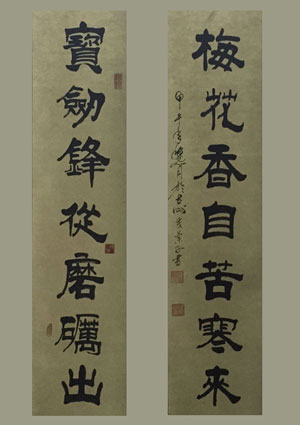 梅花香自苦寒來
甲午
寶劍鋒從磨礪出